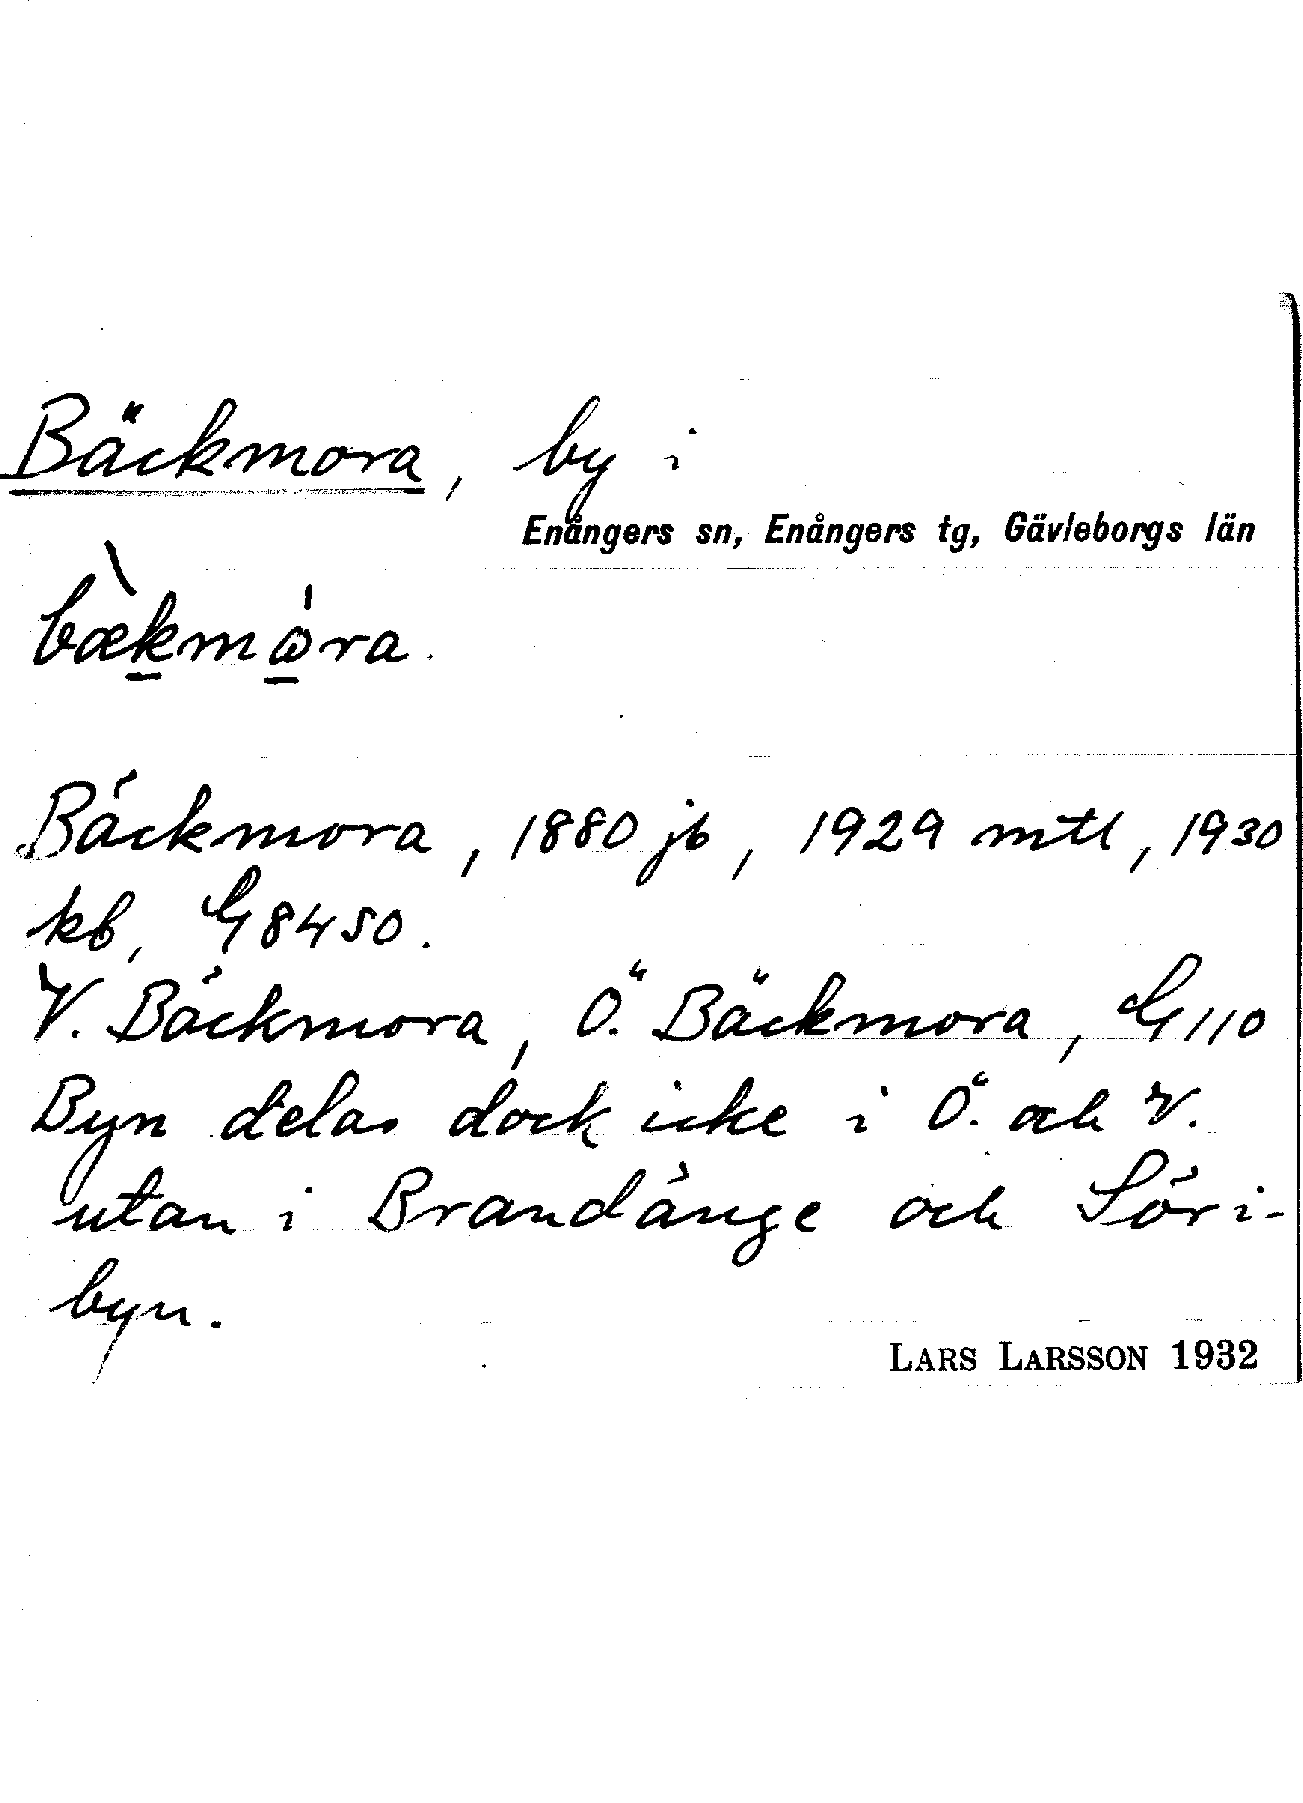 Bäckmora, by i
Enångers sn, Enångers tg, Gävleborgs län
bæ̀km̱ɷ́ra.
Bäckmora, 1880 jb, 1929 mtl, 1930
kb, G 8450.
V. Bäckmora, Ö. Bäckmora, G 110
Byn delas dock icke i Ö. och V.
utan i Brandänge och Söri-
byn.
LARS LARSSON 1932